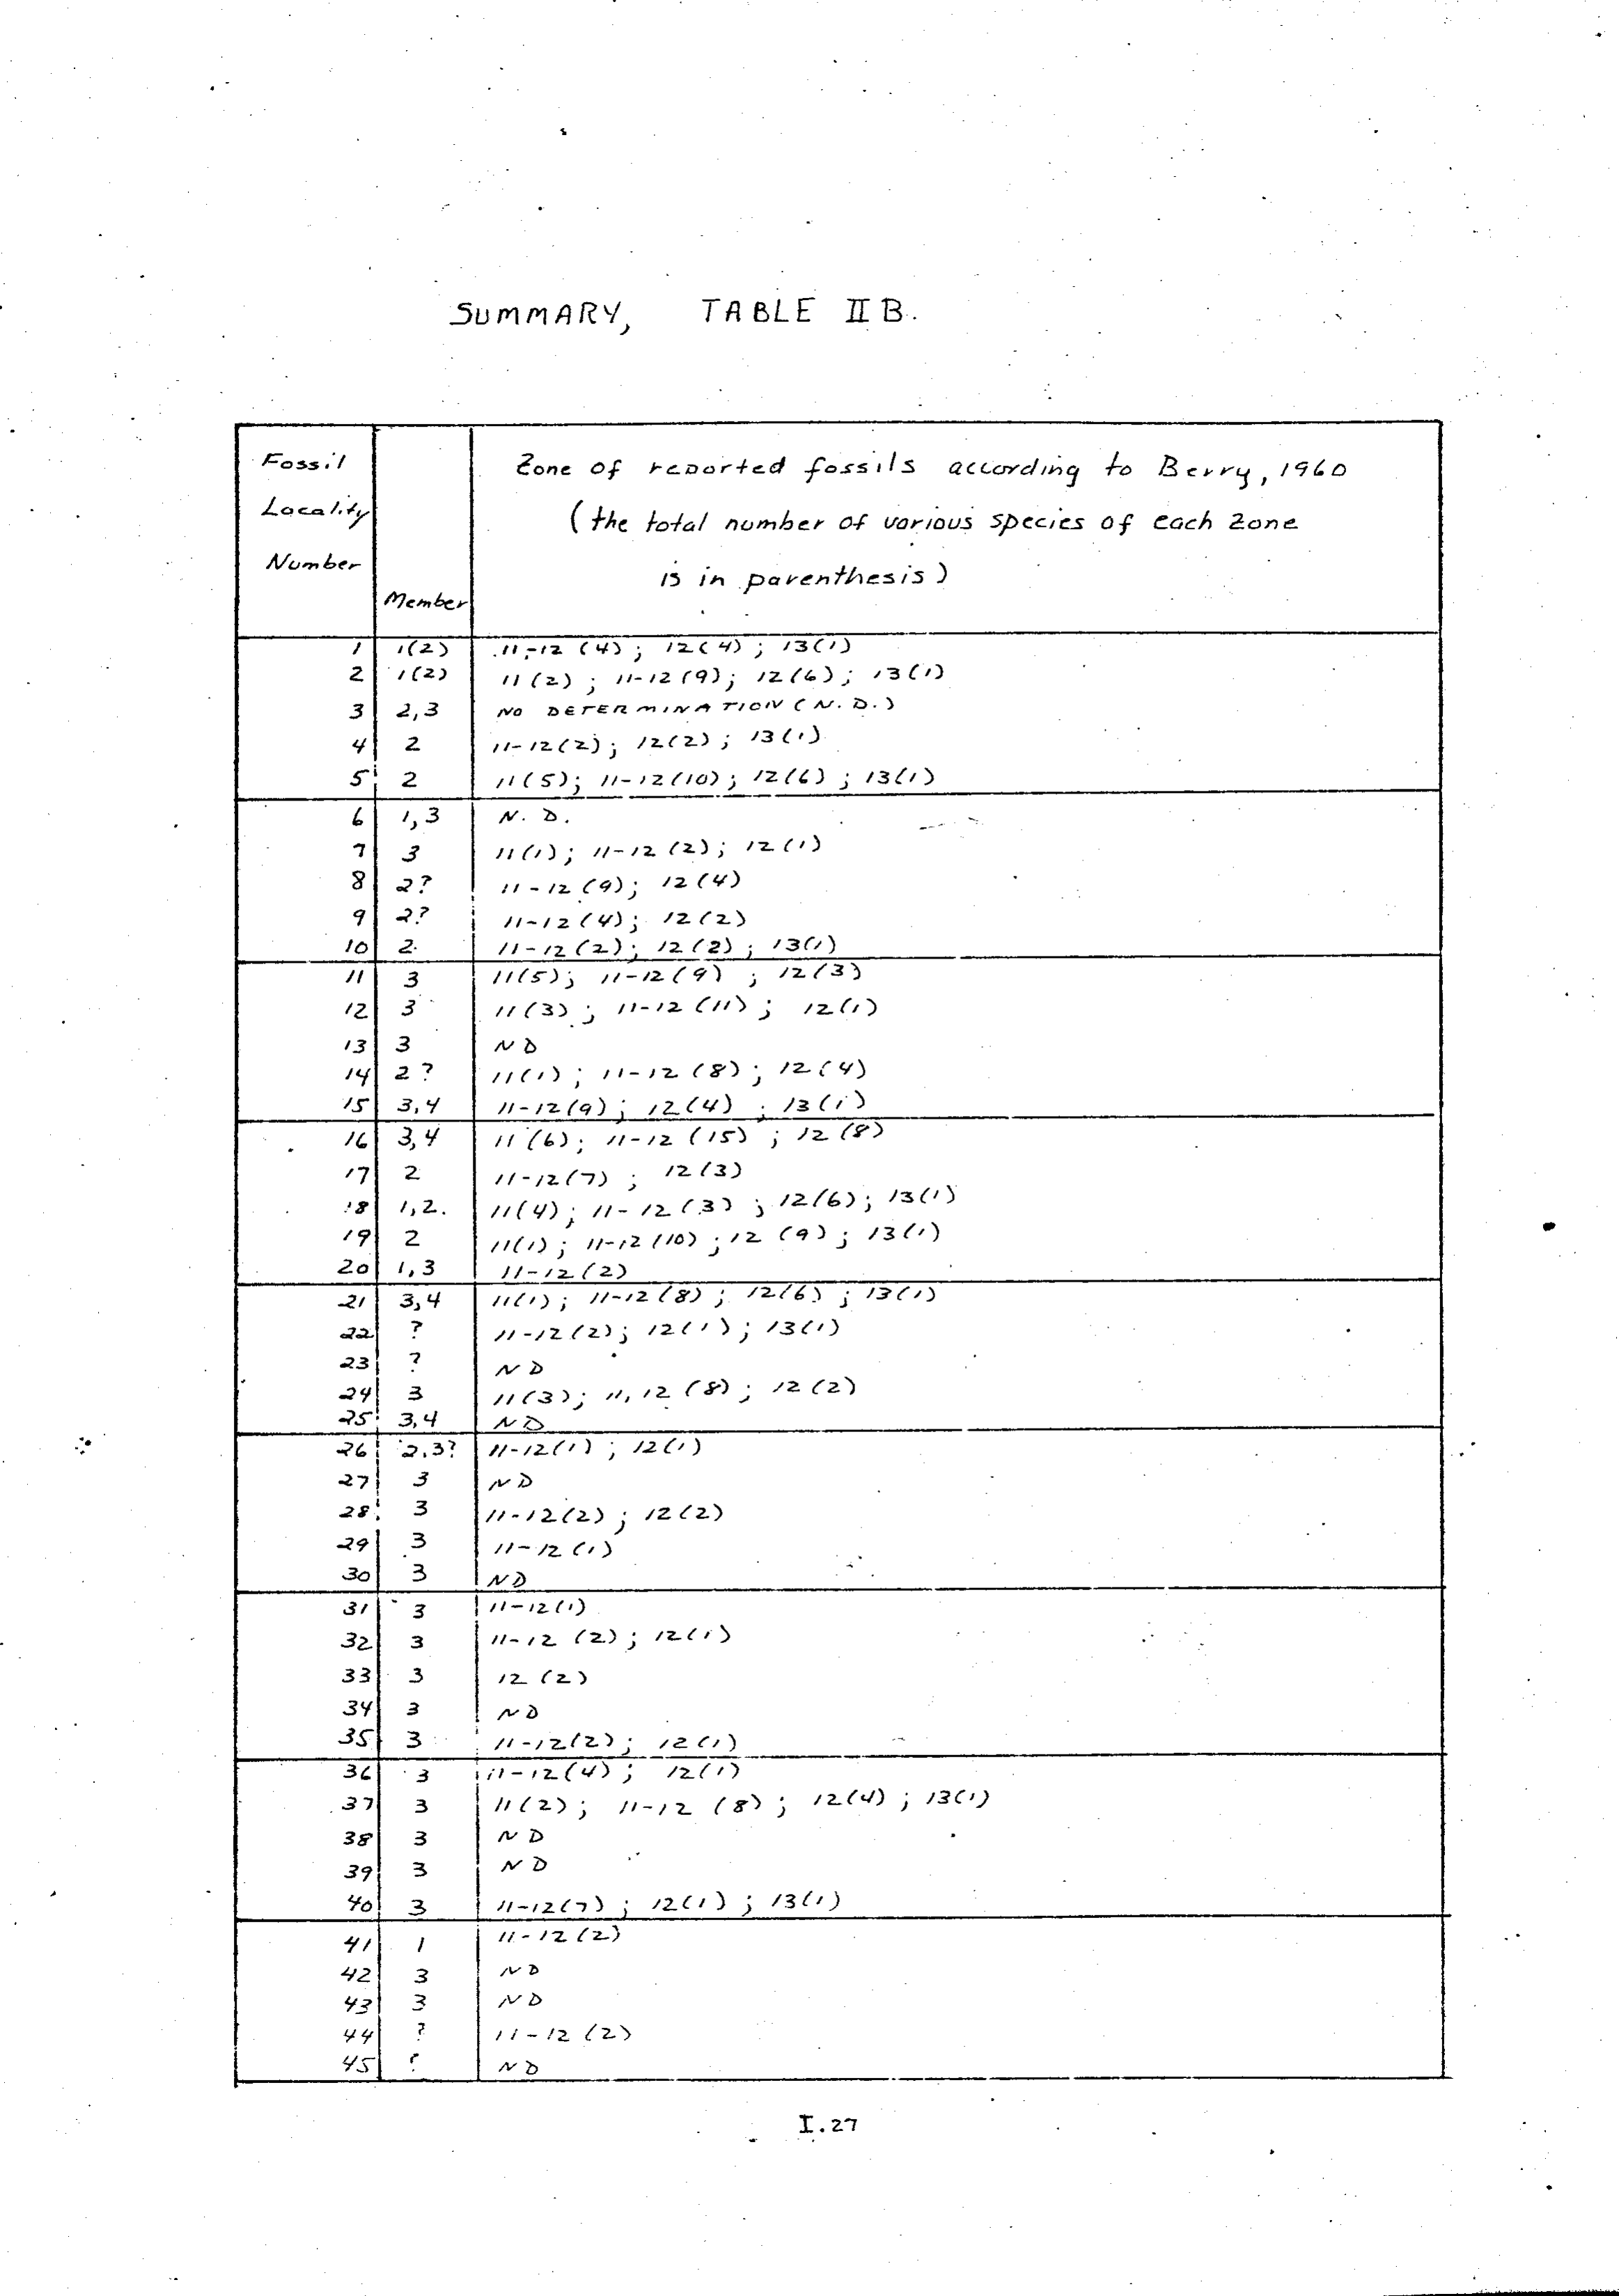 SUMMARY, TABLE II B.
Fossil
Locality
Number
Member
Zone of reported fossils according to Berry, 1960
(the total number of various species of each zone
is in parenthesis)
1 1(2) 11-12 (4); 12(4); 13(1)
2 1(2) 11(2); 11-12(9); 12(6); 13(1)
3 2,3 NO DETERMINATION (N. D.)
4 2 11-12(2); 12(2); 13(1)
5 2 11(5); 11-12(10); 12(6); 13(1)
6 1,3 N. D.
7 3 11(1); 11-12 (2); 12(1)
8 2? 11-12 (9); 12(4)
9 2? 11-12(4); 12(2)
10 2. 11-12(2); 12(2); 13(1)
11 3 11(5); 11-12(9) ; 12(3)
12 3 11(3); 11-12 (11); 12(1)
13 3 ND
14 2? 11(1); 11-12 (8); 12(4)
15 3,4 11-12(9); 12(4) ; 13(1)
16 3,4 11(6); 11-12 (15) ; 12(8)
17 2 11-12(7) ; 12(3)
18 1,2. 11(4); 11-12(3) ; 12(6); 13(1)
19 2 11(1); 11-12(10) ; 12 (9); 13(1)
20 1,3 11-12(2)
21 3,4 11(1); 11-12(8); 12(6) ; 13(1)
22 ? 11-12(2); 12(1); 13(1)
23 ? ND
24 3 11(3); 11,12 (8); 12(2)
25 3,4 ND
26 2,3? 11-12(1) ; 12(1)
27 3 ND
28 3 11-12(2) ; 12(2)
29 3 11-12 (1)
30 3 ND
31 3 11-12(1)
32 3 11-12 (2); 12(1)
33 3 12 (2)
34 3 ND
35 3 11-12(2); 12(1)
36 3 11-12(4); 12(1)
37 3 11(2); 11-12 (8); 12(4); 13(1)
38 3 ND
39 3 ND
40 3 11-12(7); 12(1); 13(1)
41 1 11-12 (2)
42 3 ND
43 3 ND
44 ? 11-12 (2)
45 ? ND
I.27